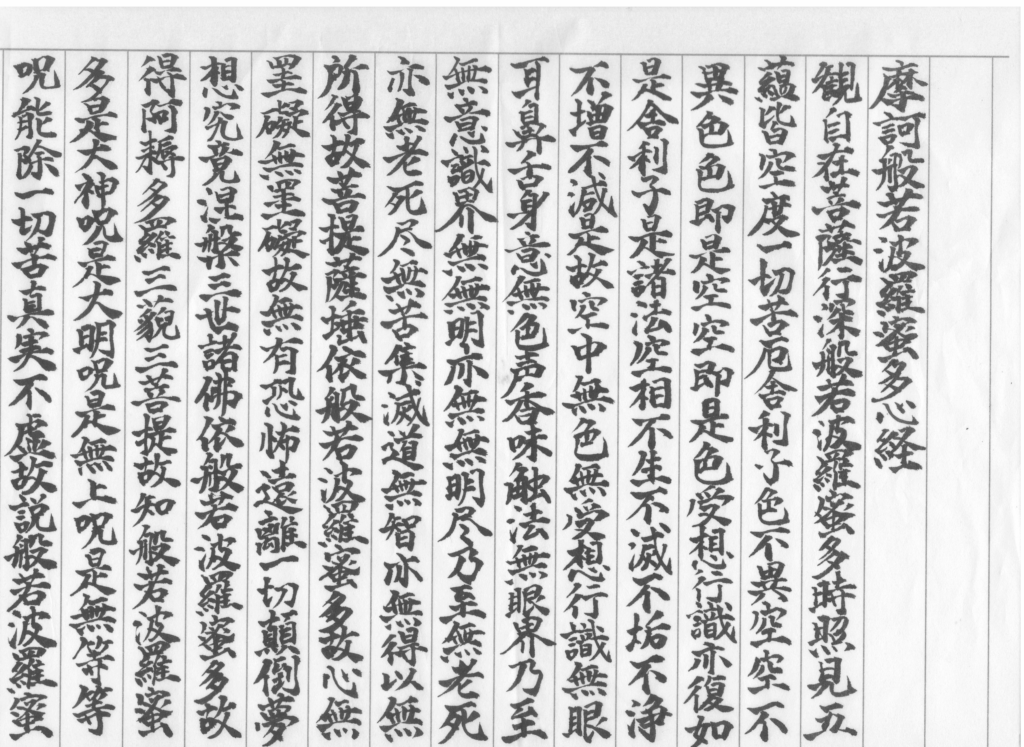 摩訶般若波羅蜜多心経
観自在菩薩行深般若波羅蜜多時照見五
蘊皆空度一切苦厄舎利子色不異空空不
異色色即是空空即是色受想行識亦復如
是舎利子是諸法空相不生不滅不垢不浄
不増不減是故空中無色無受想行識無眼
耳鼻舌身意無色声香味触法無眼界乃至
無意識界無無明亦無無明尽乃至無老死
亦無老死尽無苦集滅道無智亦無得以無
所得故菩提薩埵依般若波羅蜜多故心無
罣礙無罣礙故無有恐怖遠離一切顛倒夢
想究竟涅槃三世諸佛依般若波羅蜜多故
得阿耨多羅三藐三菩提故知般若波羅蜜
多是大神呪是大明呪是無上呪是無等等
呪能除一切苦真実不虚故説般若波羅蜜